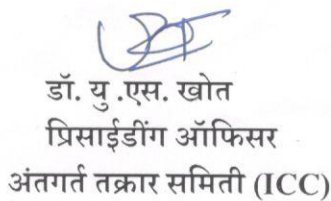 डॉ. यु .एस. खोत
प्रिसाईडींग ऑफिसर
अंतगर्त तक्रार समिती (ICC)